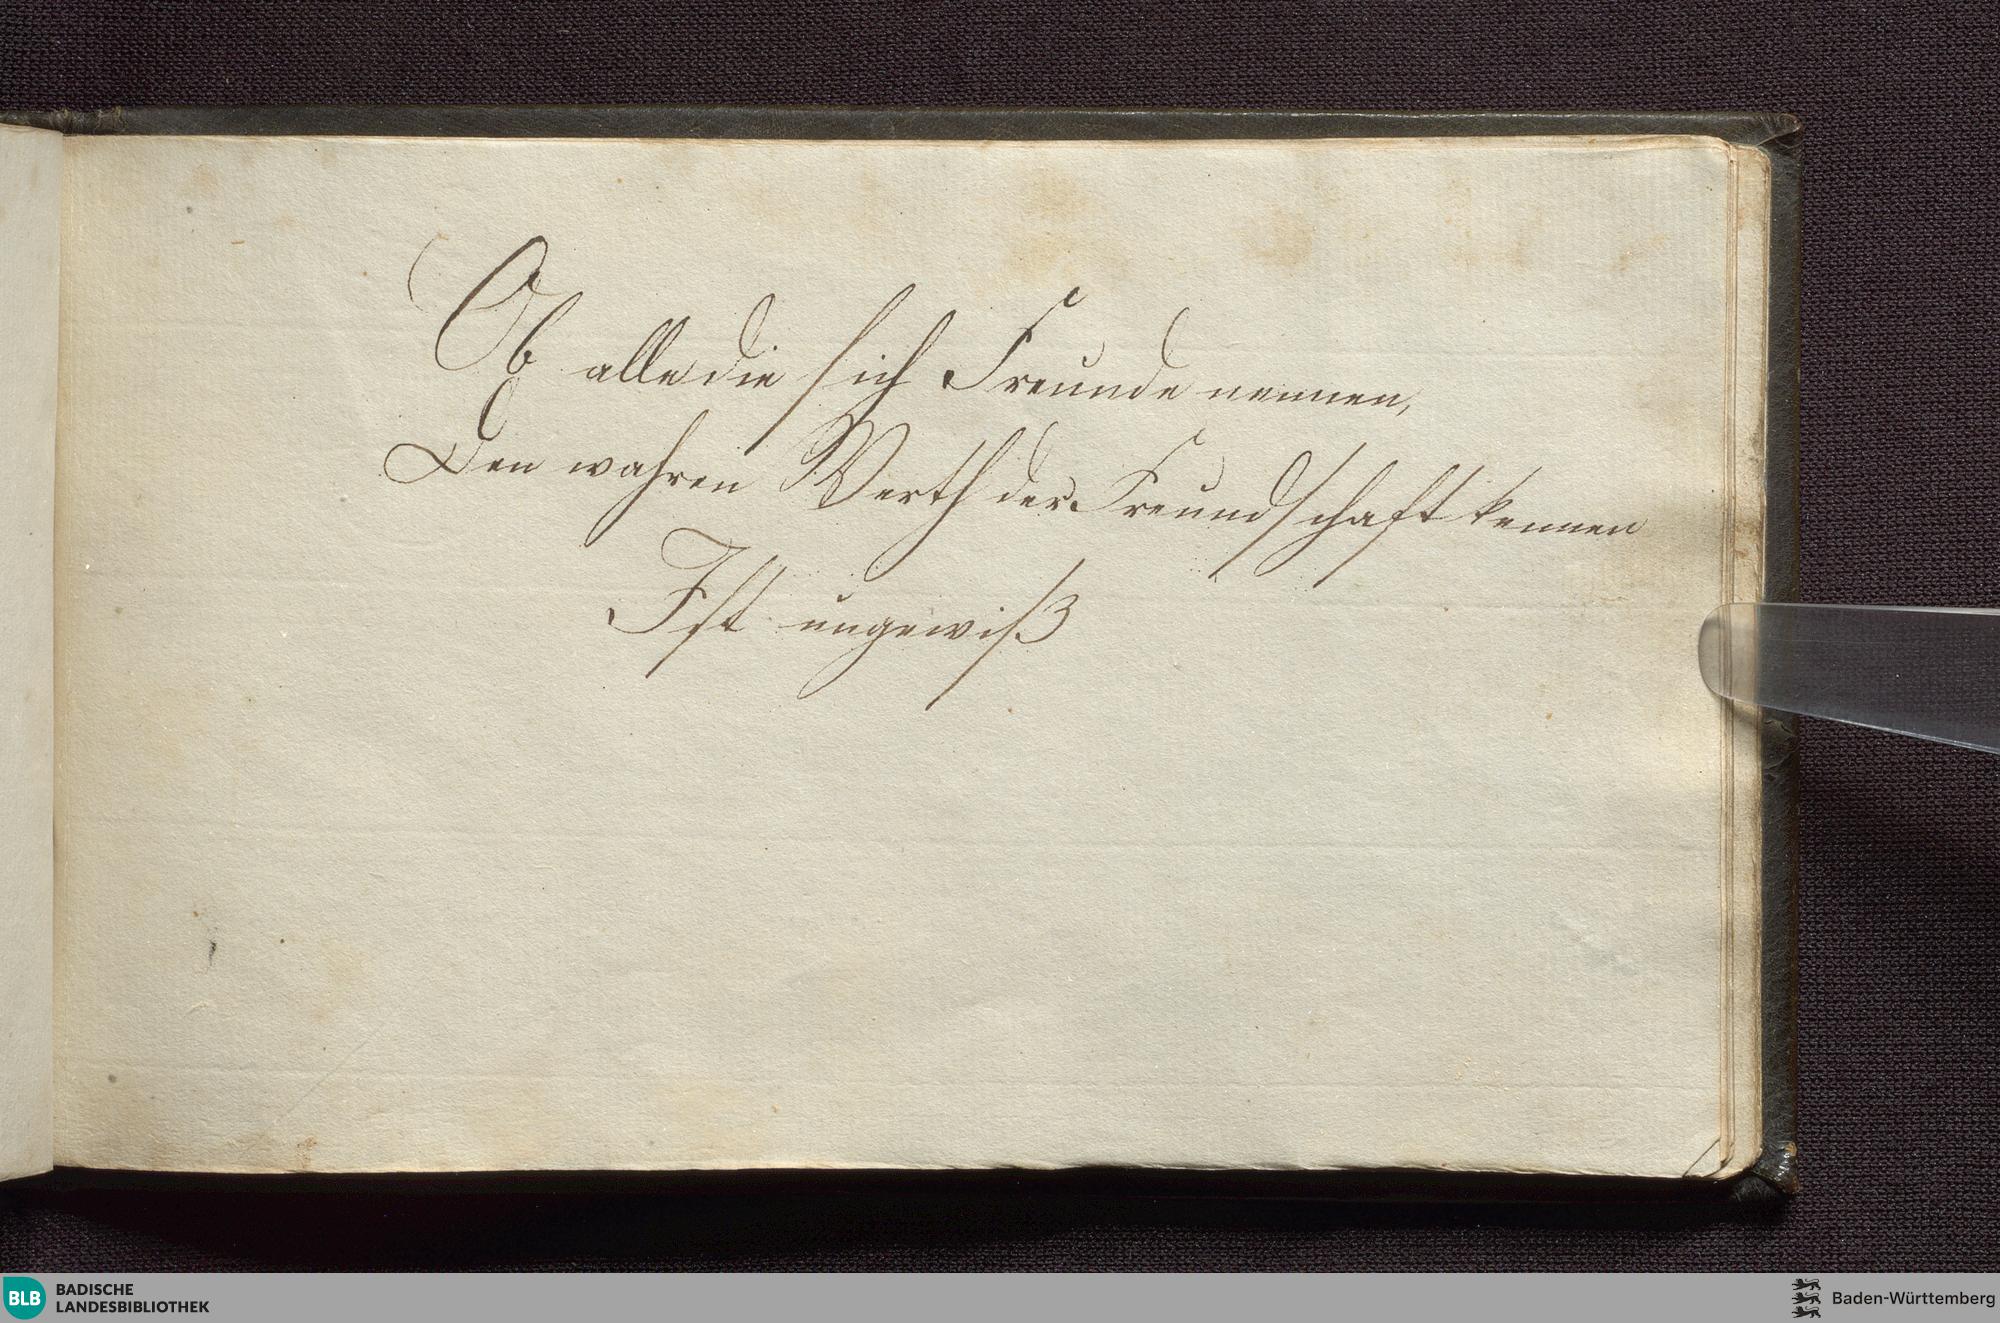 Ob alle die sich Freunde nennen,
Den wahren Werth der Freundschaft kennen
Ist ungewiß
BLB BADISCHE
LANDESBIBLIOTHEK
Baden-Württemberg